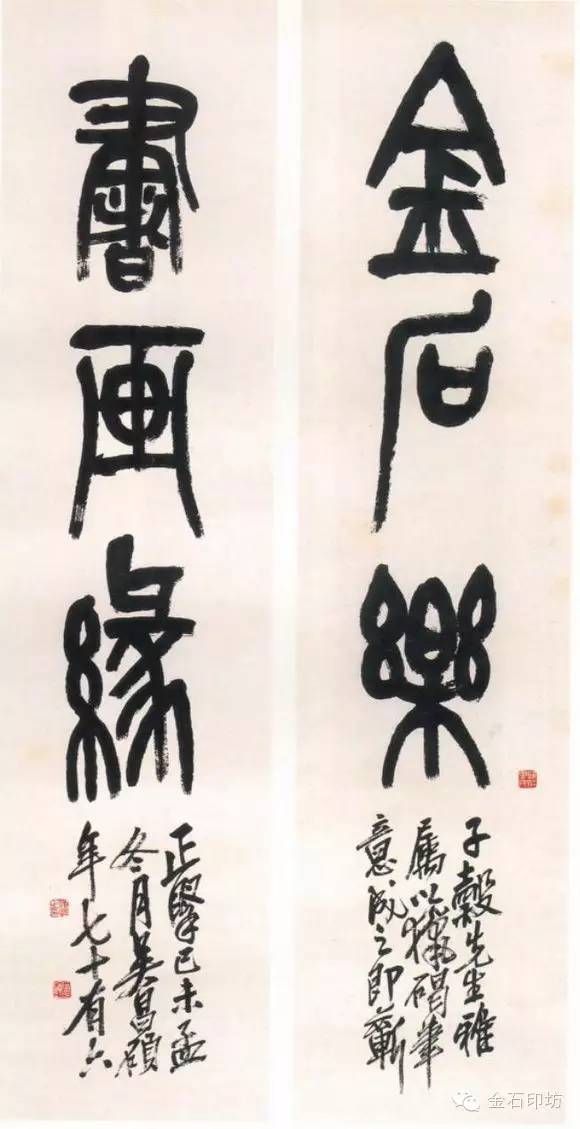 金石樂
子穀先生雅
屬以獵碣筆
意成之即蘄
書画緣
正擘己未孟
冬月吳昌碩
年七十有六
金石印坊